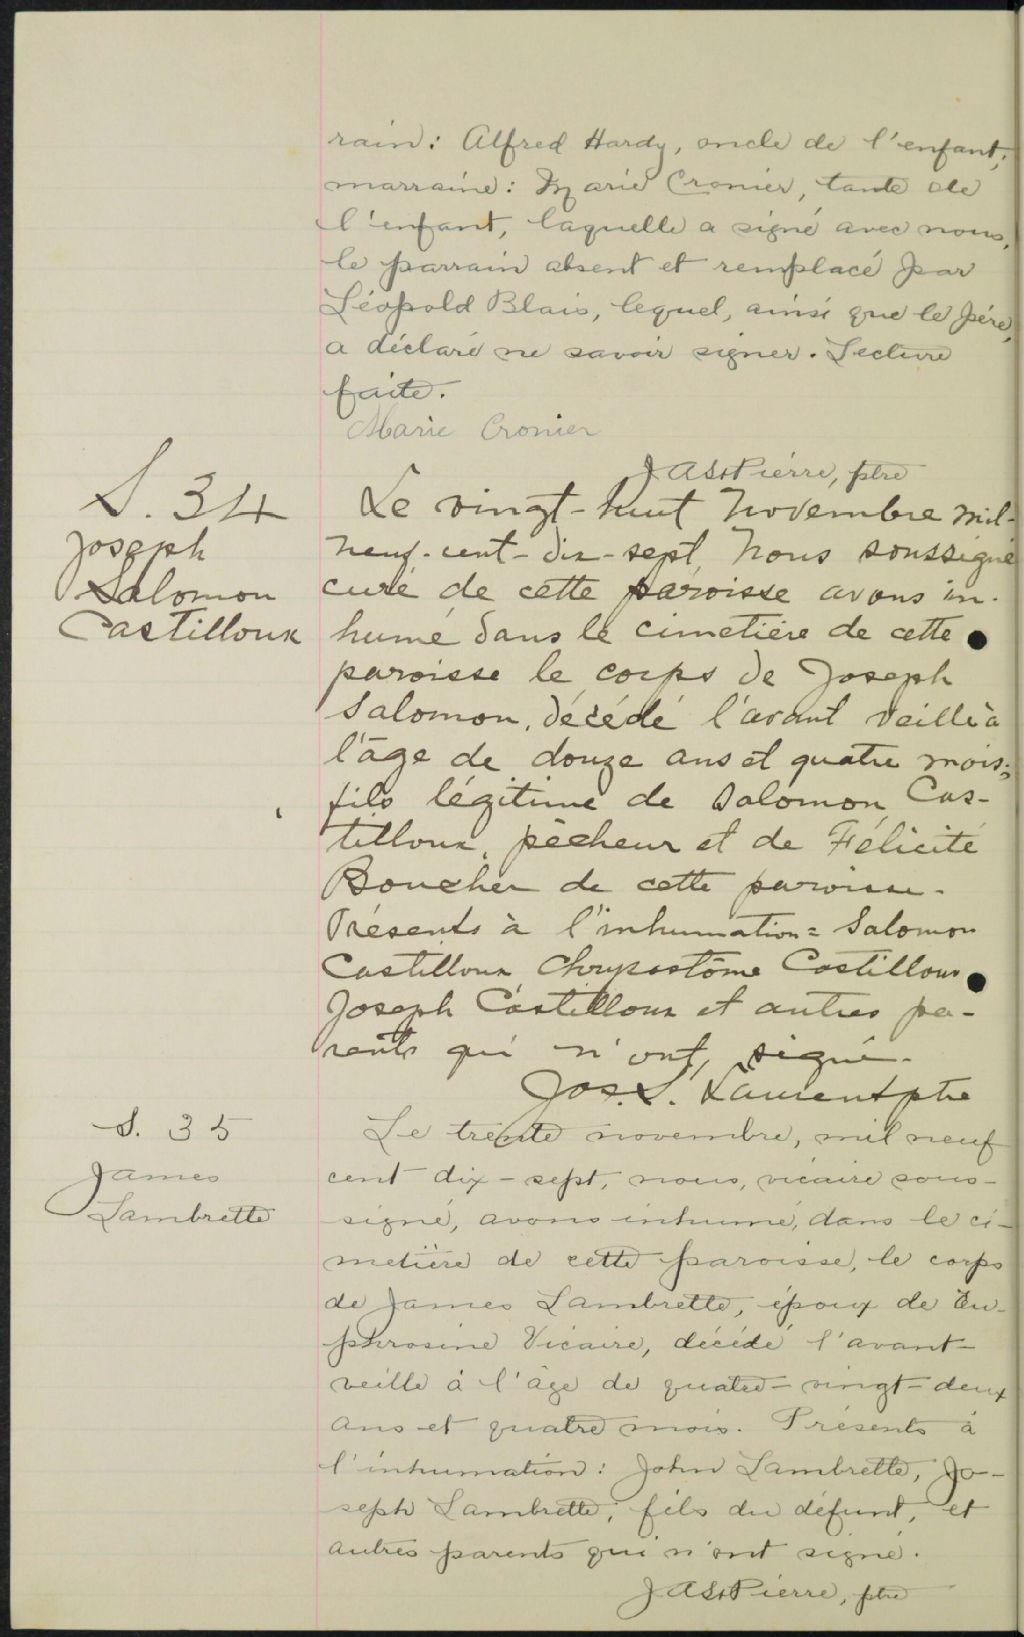 rain: Alfred Hardy, oncle de l'enfant;
marraine: Marie Cronier, tante de
l'enfant, laquelle a signé avec nous,
le parrain absent et remplacé par
Léopold Blais, lequel, ainsi que le père,
a déclaré ne savoir signer. Lecture
faite.
Marie Cronier
J A St Pierre, ptre
S. 34
Joseph
Salomon
Castilloux
Le vingt-huit Novembre mil-
neuf-cent-dix-sept, Nous soussigné
curé de cette paroisse avons in-
humé dans le cimetière de cette
paroisse le corps de Joseph
Salomon, décédé l'avant veille à
l'âge de douze ans et quatre mois;
fils légitime de Salomon Cas-
tilloux, pêcheur et de Félicité
Boucher de cette paroisse.
Présents à l'inhumation = Salomon
Castilloux Chrysostôme Castilloux
Joseph Castilloux et autres pa-
rents qui n'ont, signé.
Jos. S. Laurent ptre
S. 35
James
Lambrette
Le trente novembre, mil neuf
cent dix-sept, nous, vicaire sous-
signé, avons inhumé, dans le ci-
metière de cette paroisse, le corps
de James Lambrette, époux de Eu-
phrosine Vicaire, décédé l'avant-
veille à l'âge de quatre-vingt-deux
ans et quatre mois. Présents à
l'inhumation: John Lambrette, Jo-
seph Lambrette, fils du défunt, et
autres parents qui n'ont signé.
J A St Pierre, ptre